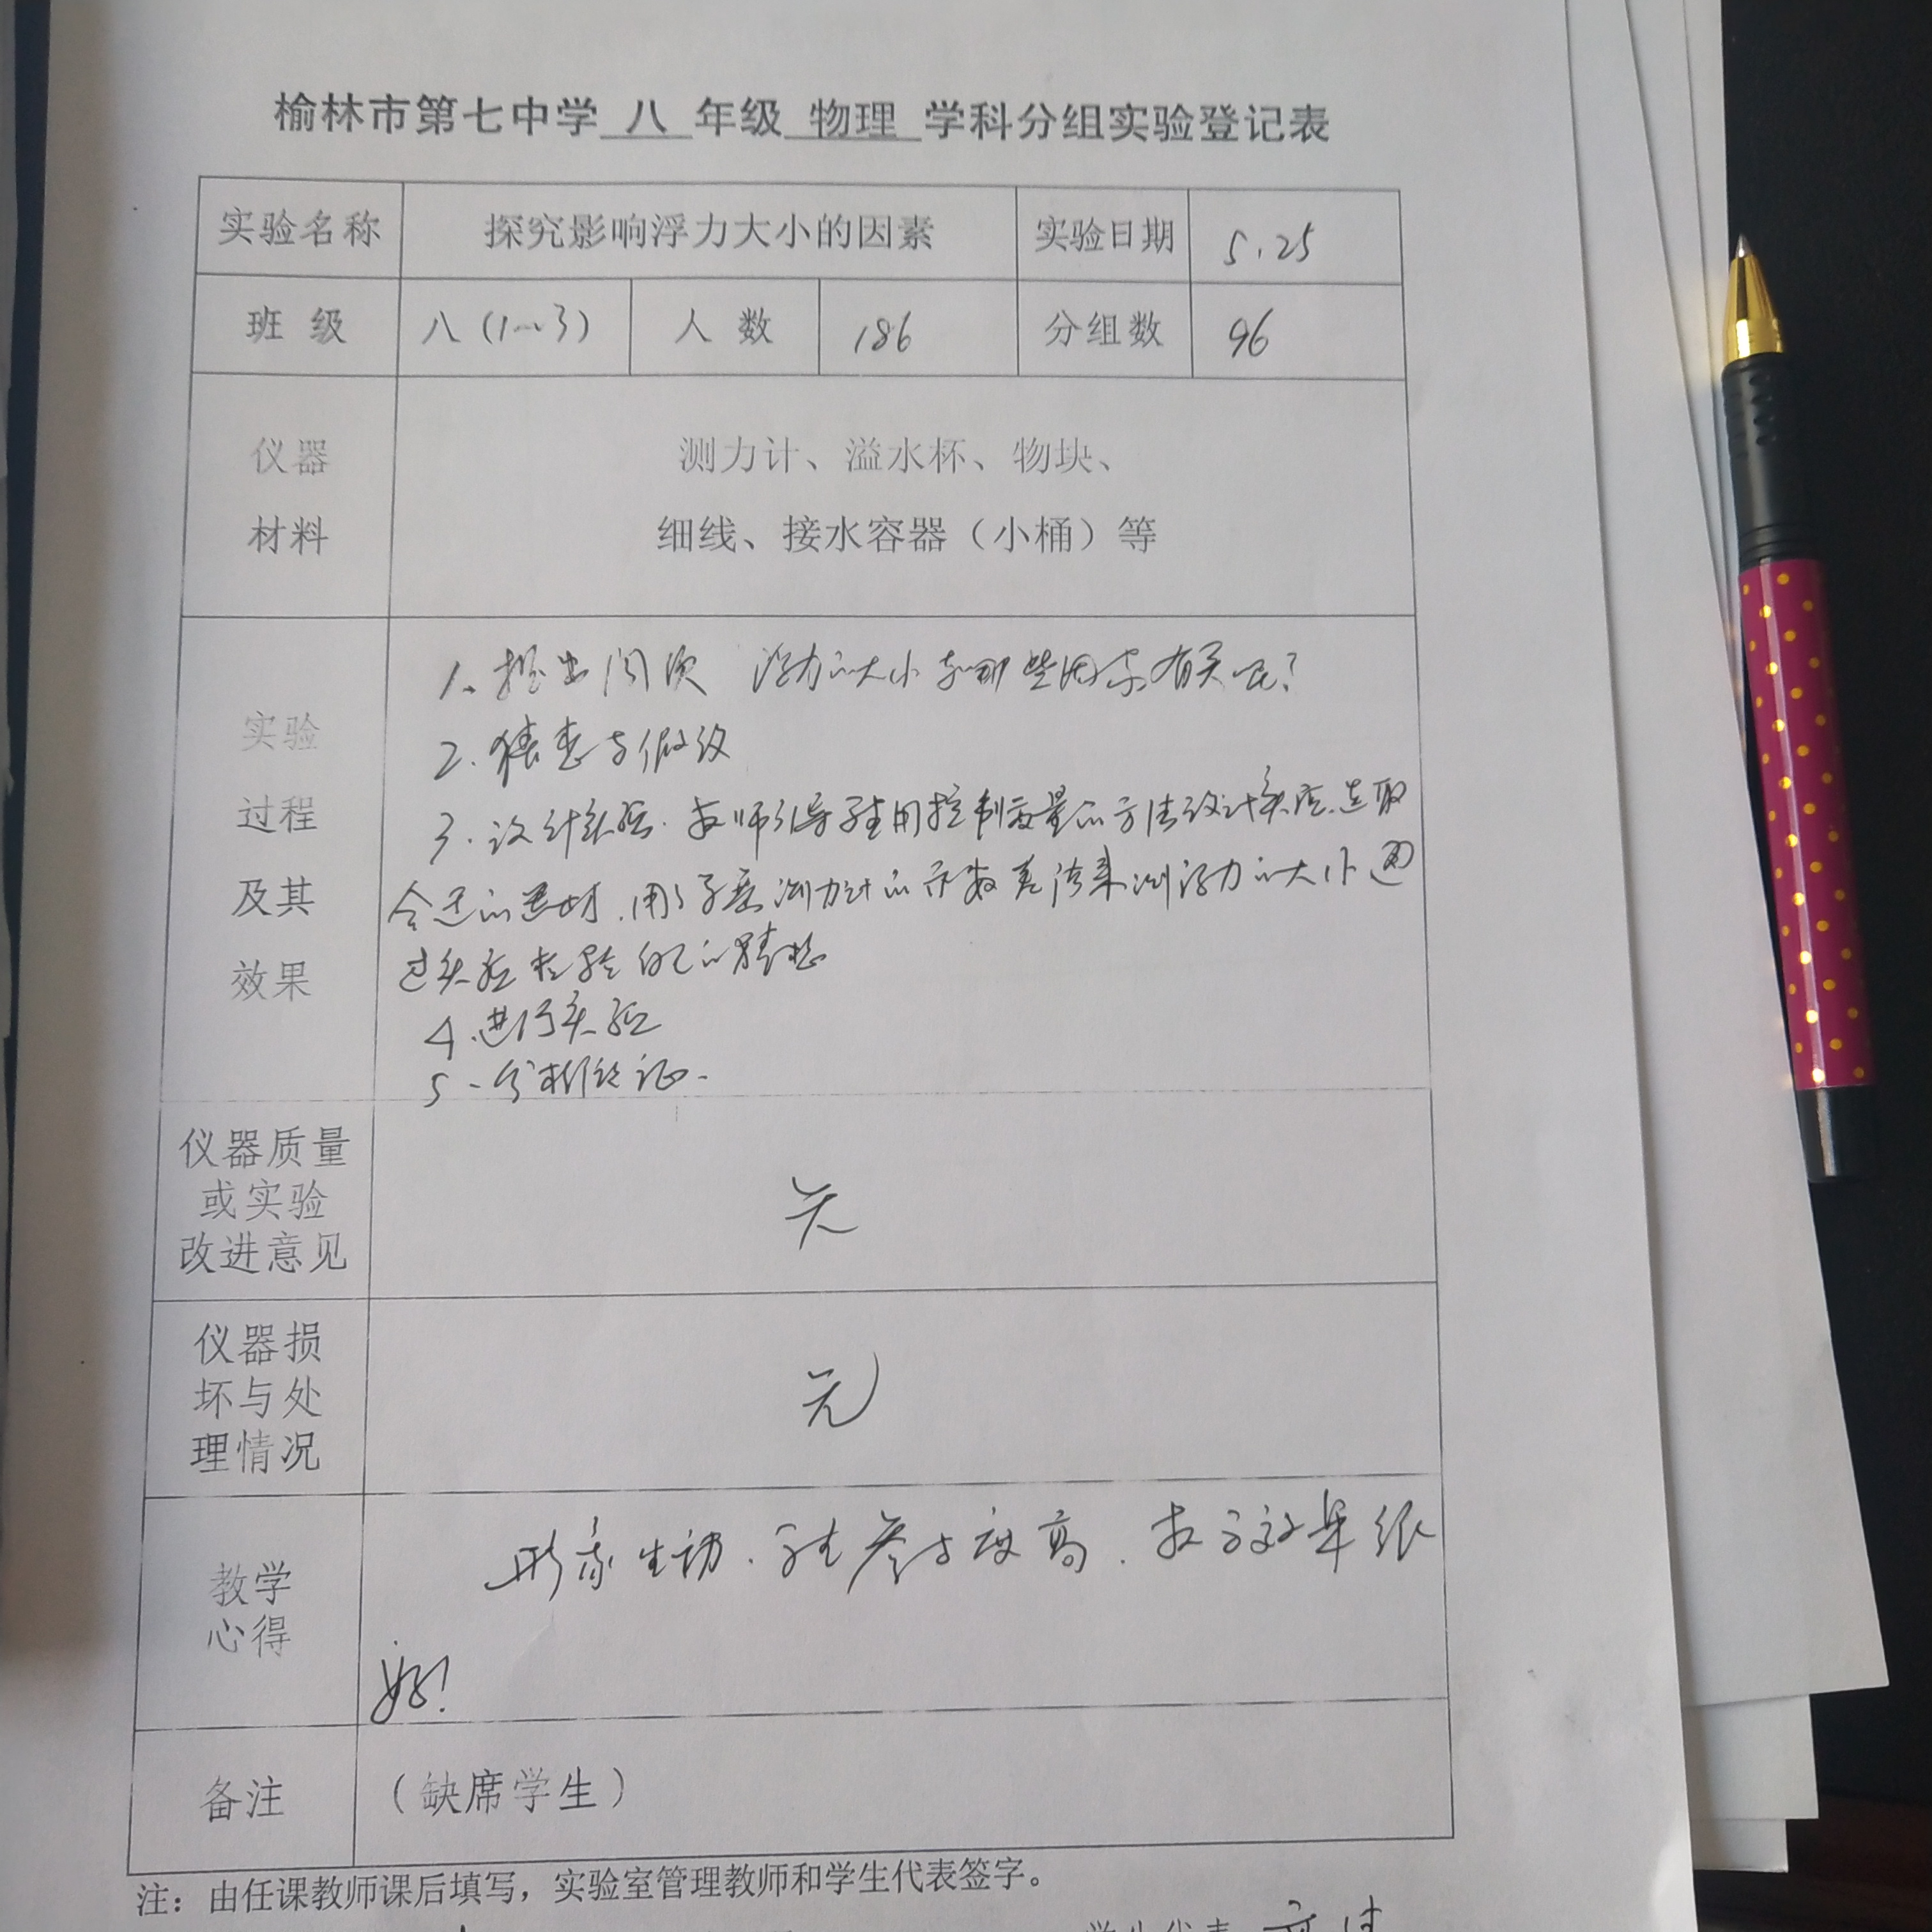 榆林市第七中学 八 年级 物理 学科分组实验登记表
实验名称 探究影响浮力大小的因素 实验日期 5.25
班级 八(1~3) 人数 186 分组数 96
仪器
材料
测力计、溢水杯、物块、
细线、接水容器（小桶）等
实验
过程
及其
效果
1.提出问题 浮力的大小与哪些因素有关呢?
2.猜想与假设
3.设计实验.教师引导学生用控制变量的方法设计实验.选取
合适的器材.用弹簧测力计的示数差法来测浮力的大小 通
过实验检验自己的猜想
4.进行实验
5.分析论证.
仪器质量
或实验
改进意见
无
仪器损
坏与处
理情况
无
教学
心得
形象生动.学生参与度高.教学效果很
好!
备注 （缺席学生）
注：由任课教师课后填写，实验室管理教师和学生代表签字。
学生代表